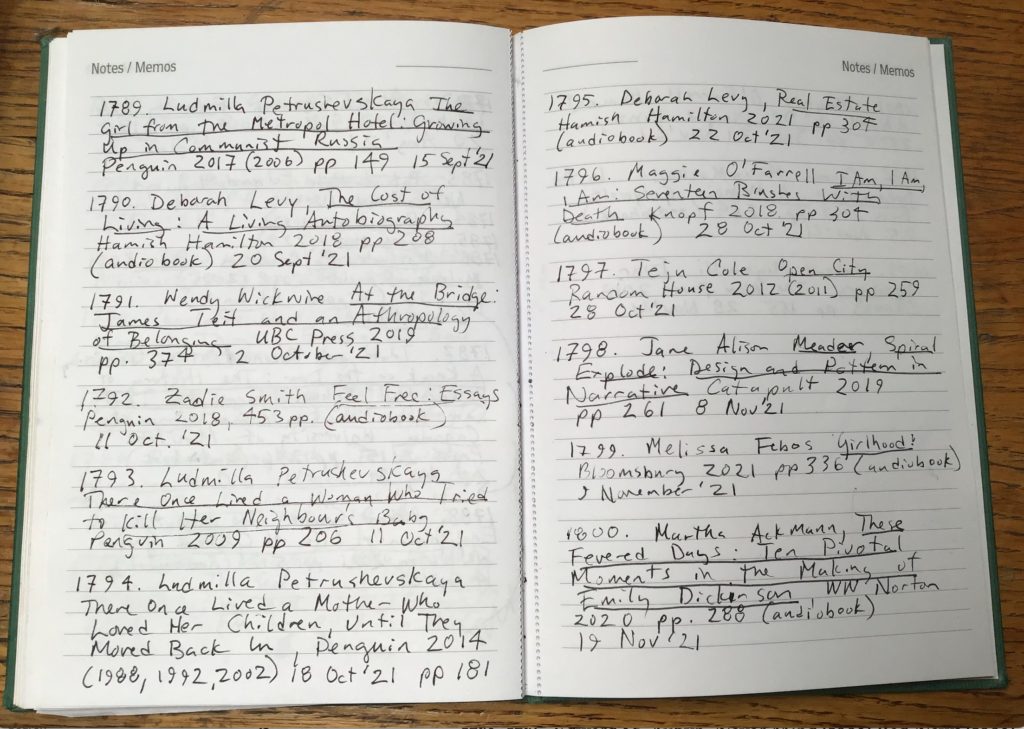 Notes / Memos
1789. Ludmilla Petrushevskaya The
girl from the Metropol Hotel: Growing
Up in Communist Russia
Penguin 2017 (2006) pp 149 15 Sept '21
1790. Deborah Levy, The Cost of
Living: A Living Autobiography
Hamish Hamilton 2018 pp 208
(audiobook) 20 Sept '21
1791. Wendy Wickwire At the Bridge:
James Teit and an Athropology
of Belonging UBC Press 2019
pp. 374 2 October '21
1792. Zadie Smith Feel Free: Essays
Penguin 2018, 453 pp. (audiobook)
11 Oct. '21
1793. Ludmilla Petrushevskaya
There Once Lived a Woman Who Tried
to Kill Her Neighbour's Baby
Penguin 2009 pp 206 11 Oct '21
1794. Ludmilla Petrushevskaya
There Once Lived a Mother Who
Loved Her Children, Until They
Moved Back In, Penguin 2014
(1988, 1992, 2002) 18 Oct '21 pp 181
Notes / Memos
1795. Deborah Levy, Real Estate
Hamish Hamilton 2021 pp 304
(audiobook) 22 Oct '21
1796. Maggie O'Farrell I Am, I Am,
I Am: Seventeen Brushes With
Death Knopf 2018 pp 304
(audiobook) 28 Oct '21
1797. Teju Cole Open City
Random House 2012 (2011) pp 259
28 Oct '21
1798. Jane Alison Meander Spiral
Explode: Design and Pattern in
Narrative Catapult 2019
pp 261 8 Nov '21
1799. Melissa Febos Girlhood!
Bloomsbury 2021 pp 336 (audiobook)
November '21
1800. Martha Ackmann, These
Fevered Days: Ten Pivotal
Moments in the Making of
Emily Dickinson, WW Norton
2020 pp. 288 (audiobook)
19 Nov '21